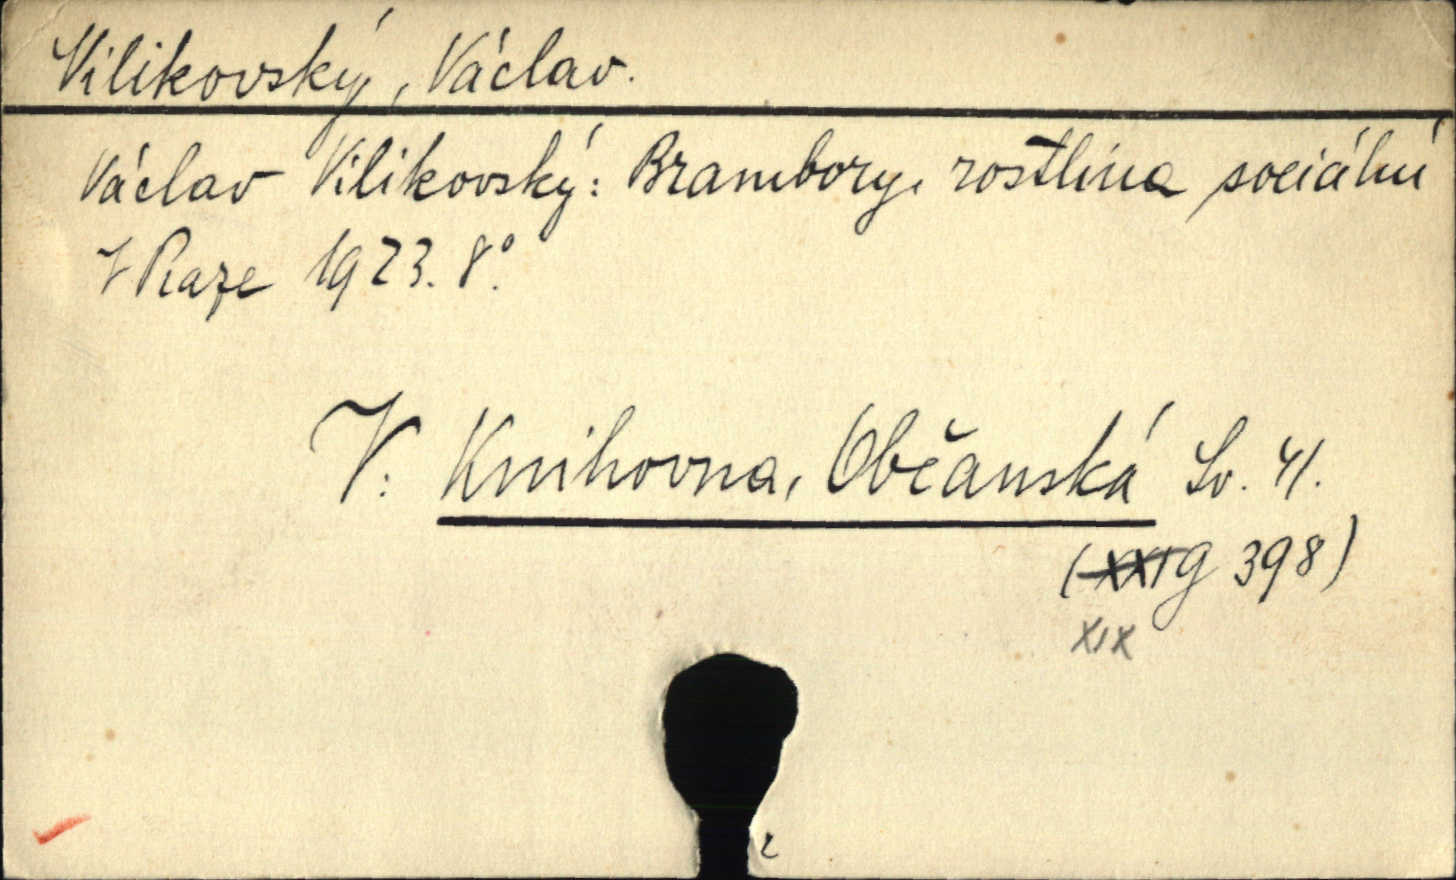 Vilikovský, Václav.
Václav Vilikovský: Brambory, rostlina sociální
V Praze 1923. 8°.
V: Knihovna, Občanská Sv. 41.
(XXI G 398)
XIX